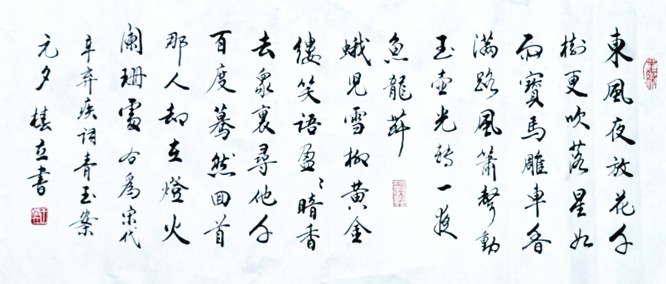 東風夜放花千
樹更吹落星如
雨寶馬雕車香
滿路風簫聲動
玉壺光轉一夜
魚龍舞
蛾兒雪柳黃金
縷笑語盈〻暗香
去衆裏尋他千
百度驀然回首
那人却在燈火
闌珊處 右爲宋代
辛弃疾詞青玉案
元夕 書